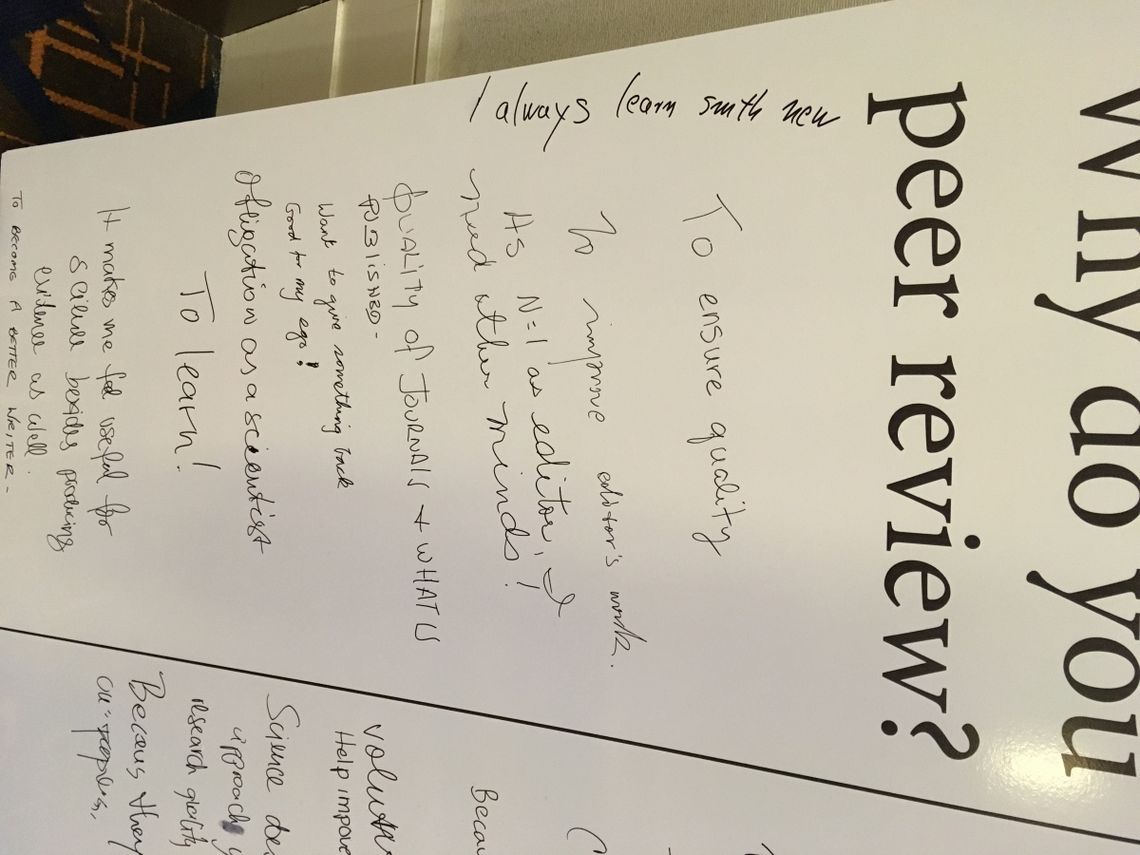 Why do you
peer review?
I always learn smth new
To ensure quality
To improve editor's work.
As N=1 as editor, I
need other minds!
QUALITY OF JOURNALS + WHAT IS
PUBLISHED-
Want to give something back
Good for my ego!
Obligation as a scientist
To learn!
It makes me feel useful for
science besides producing
evidence as well.
TO BECOME A BETTER WRITER-
Becau
Volunt
Help improve
Science
approach
research quality
Becaus they